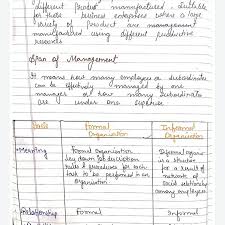 different Product manufactured. Suitable
for those business enterprises where a large
variety of Product are management
manufactured using different productive
resources
Span of Management
It means how many employee or subordinate
can be effectively managed by one
manager or how many subordinate
are under one superior
Basis Formal Organisation Informal Organisation
Meaning Formal organisation
lay down job description
rules & procedures for each
task to be performed in an
organisation
Informal organi
is a structure
for a result of
network of
social relationship
among employees
Relationship Formal Informal